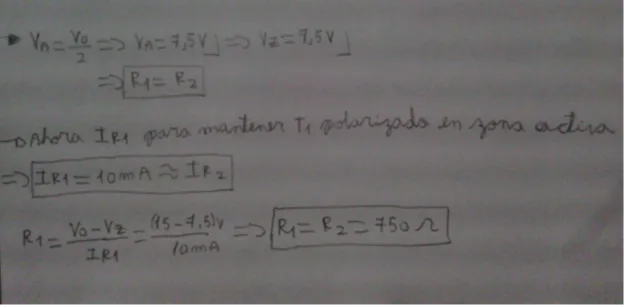 • VA = Vo/2 => VA = 7,5V => VZ = 7,5V
=> R1 = R2
→ Ahora IR1 para mantener T1 polarizado en zona activa
=> IR1 = 10mA ≈ IR2
R1 = Vo - VZ / IR1 = (15 - 7,5)V / 10mA => R1 = R2 = 750 Ω